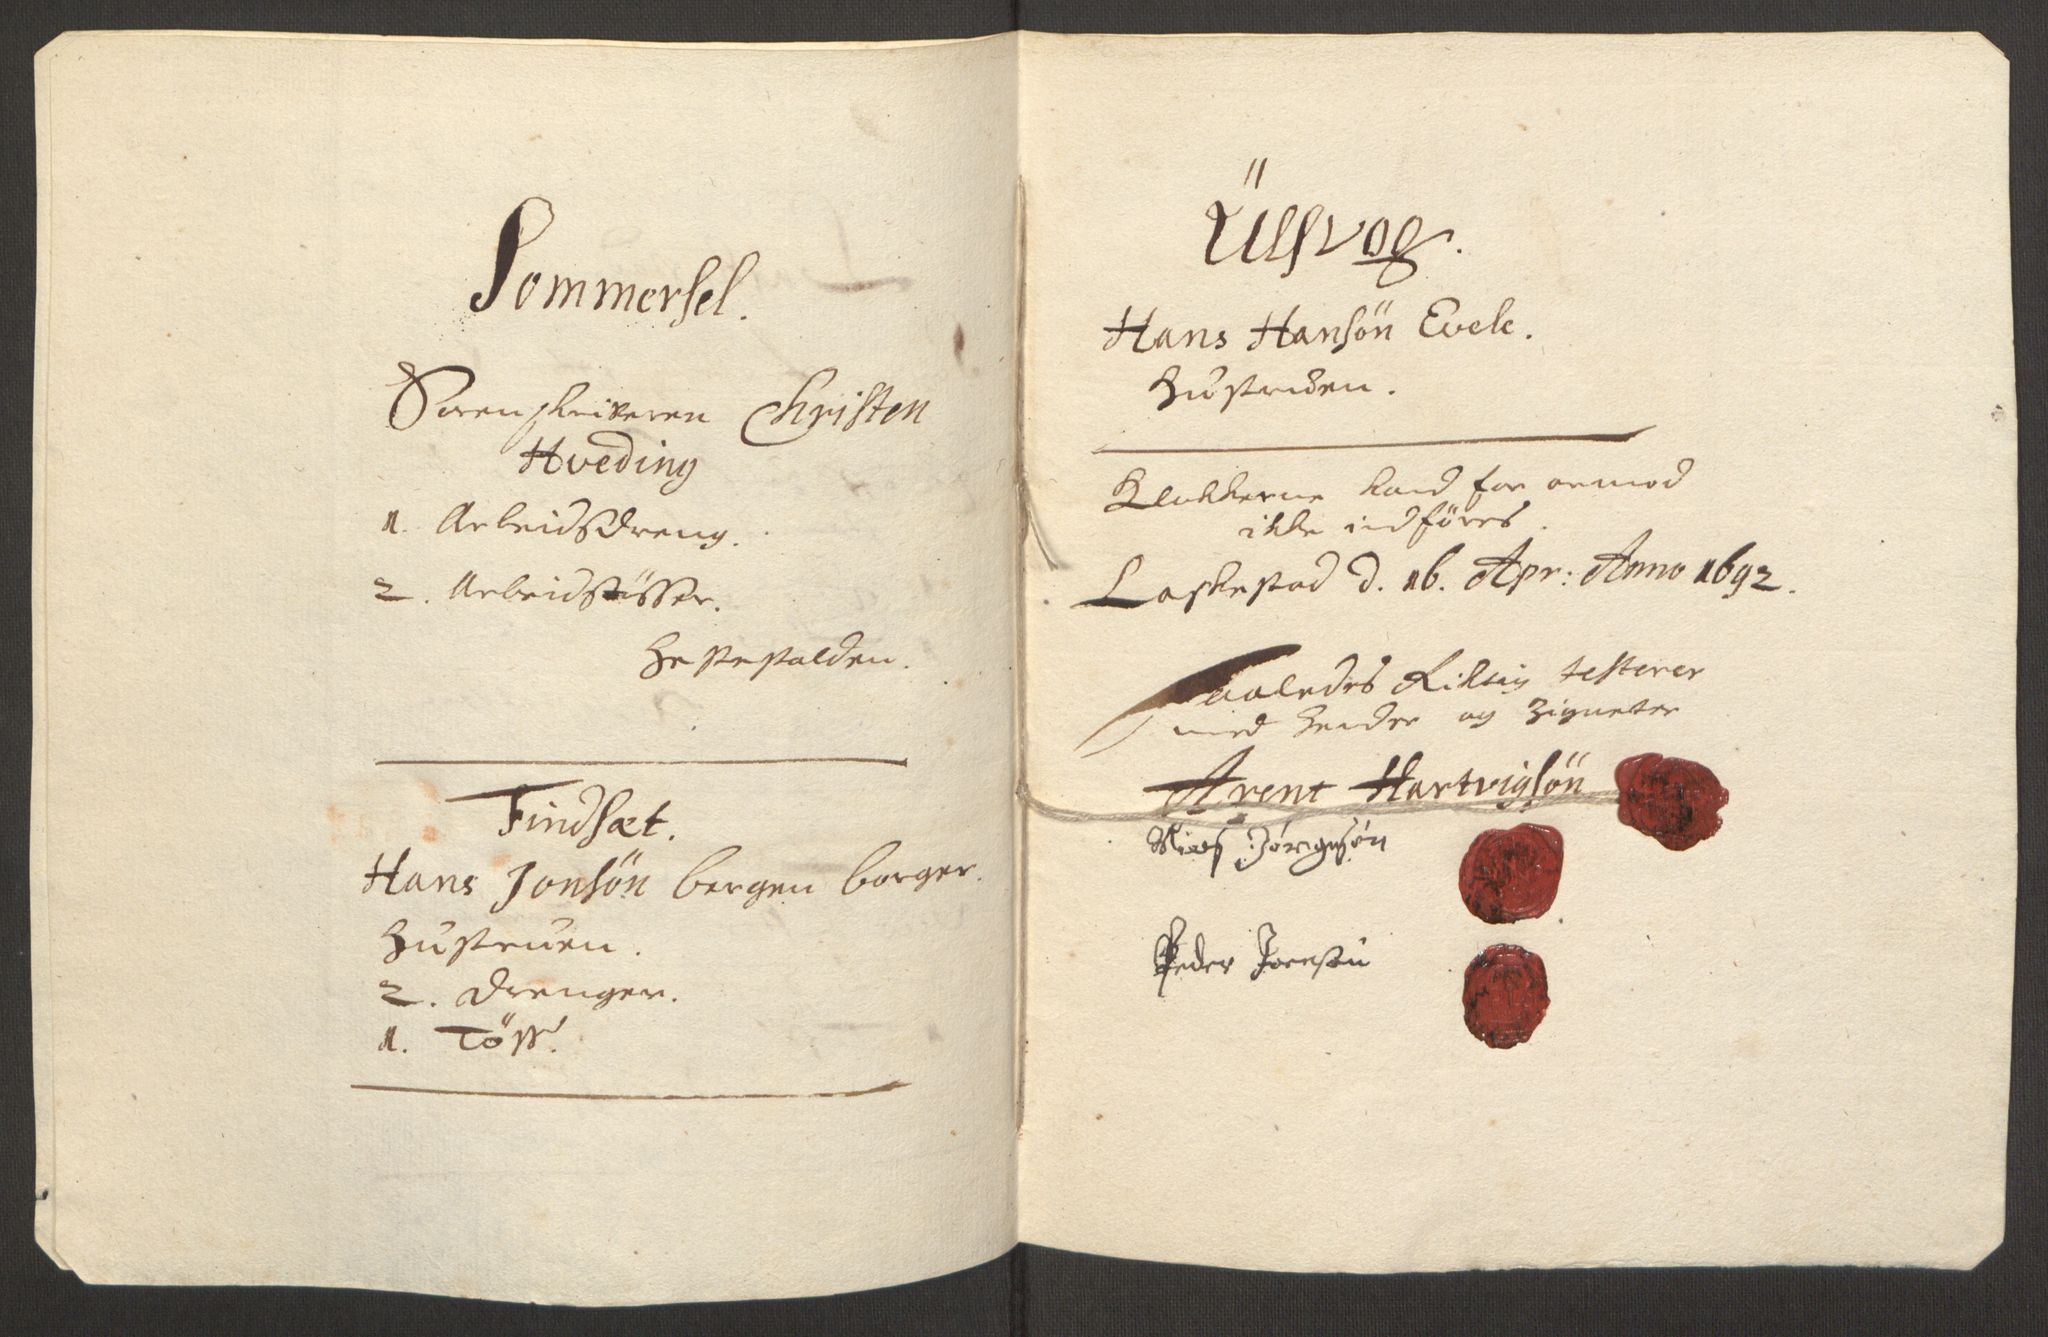 Sommersel.
Sorenskriveren Christen
Hveding
1. Arbeidsdreng.
2. Arbeidstösser.
Hestestalden.
Findsæt.
Hans Jonsön bergen borger.
Hustruen.
2. Drenger.
1. Töss.
Ülsvog.
Hans Hansön Evele.
Hustruen.
Klokkerne kand for armod
ikke indföres.
Laskestad d. 16. Apr: Anno 1692.
Saaledes Riktig testerer
med hender og Zigneter
Arent Hartvigsön
Niels Jörgensön
Peder Joensön